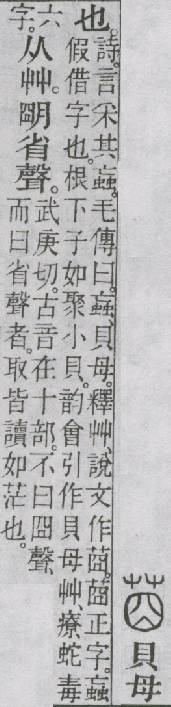 莔貝母
也。詩。言采其蝱。毛傳曰。蝱、貝母。釋艸、說文作莔。莔正字。蝱
假借字也。根下子如聚小貝。韵會引作貝母艸、療蛇毒
六字。从艸。朙省聲。武庚切。古音在十部。不曰囧聲、
而曰省聲者。取皆讀如茫也。